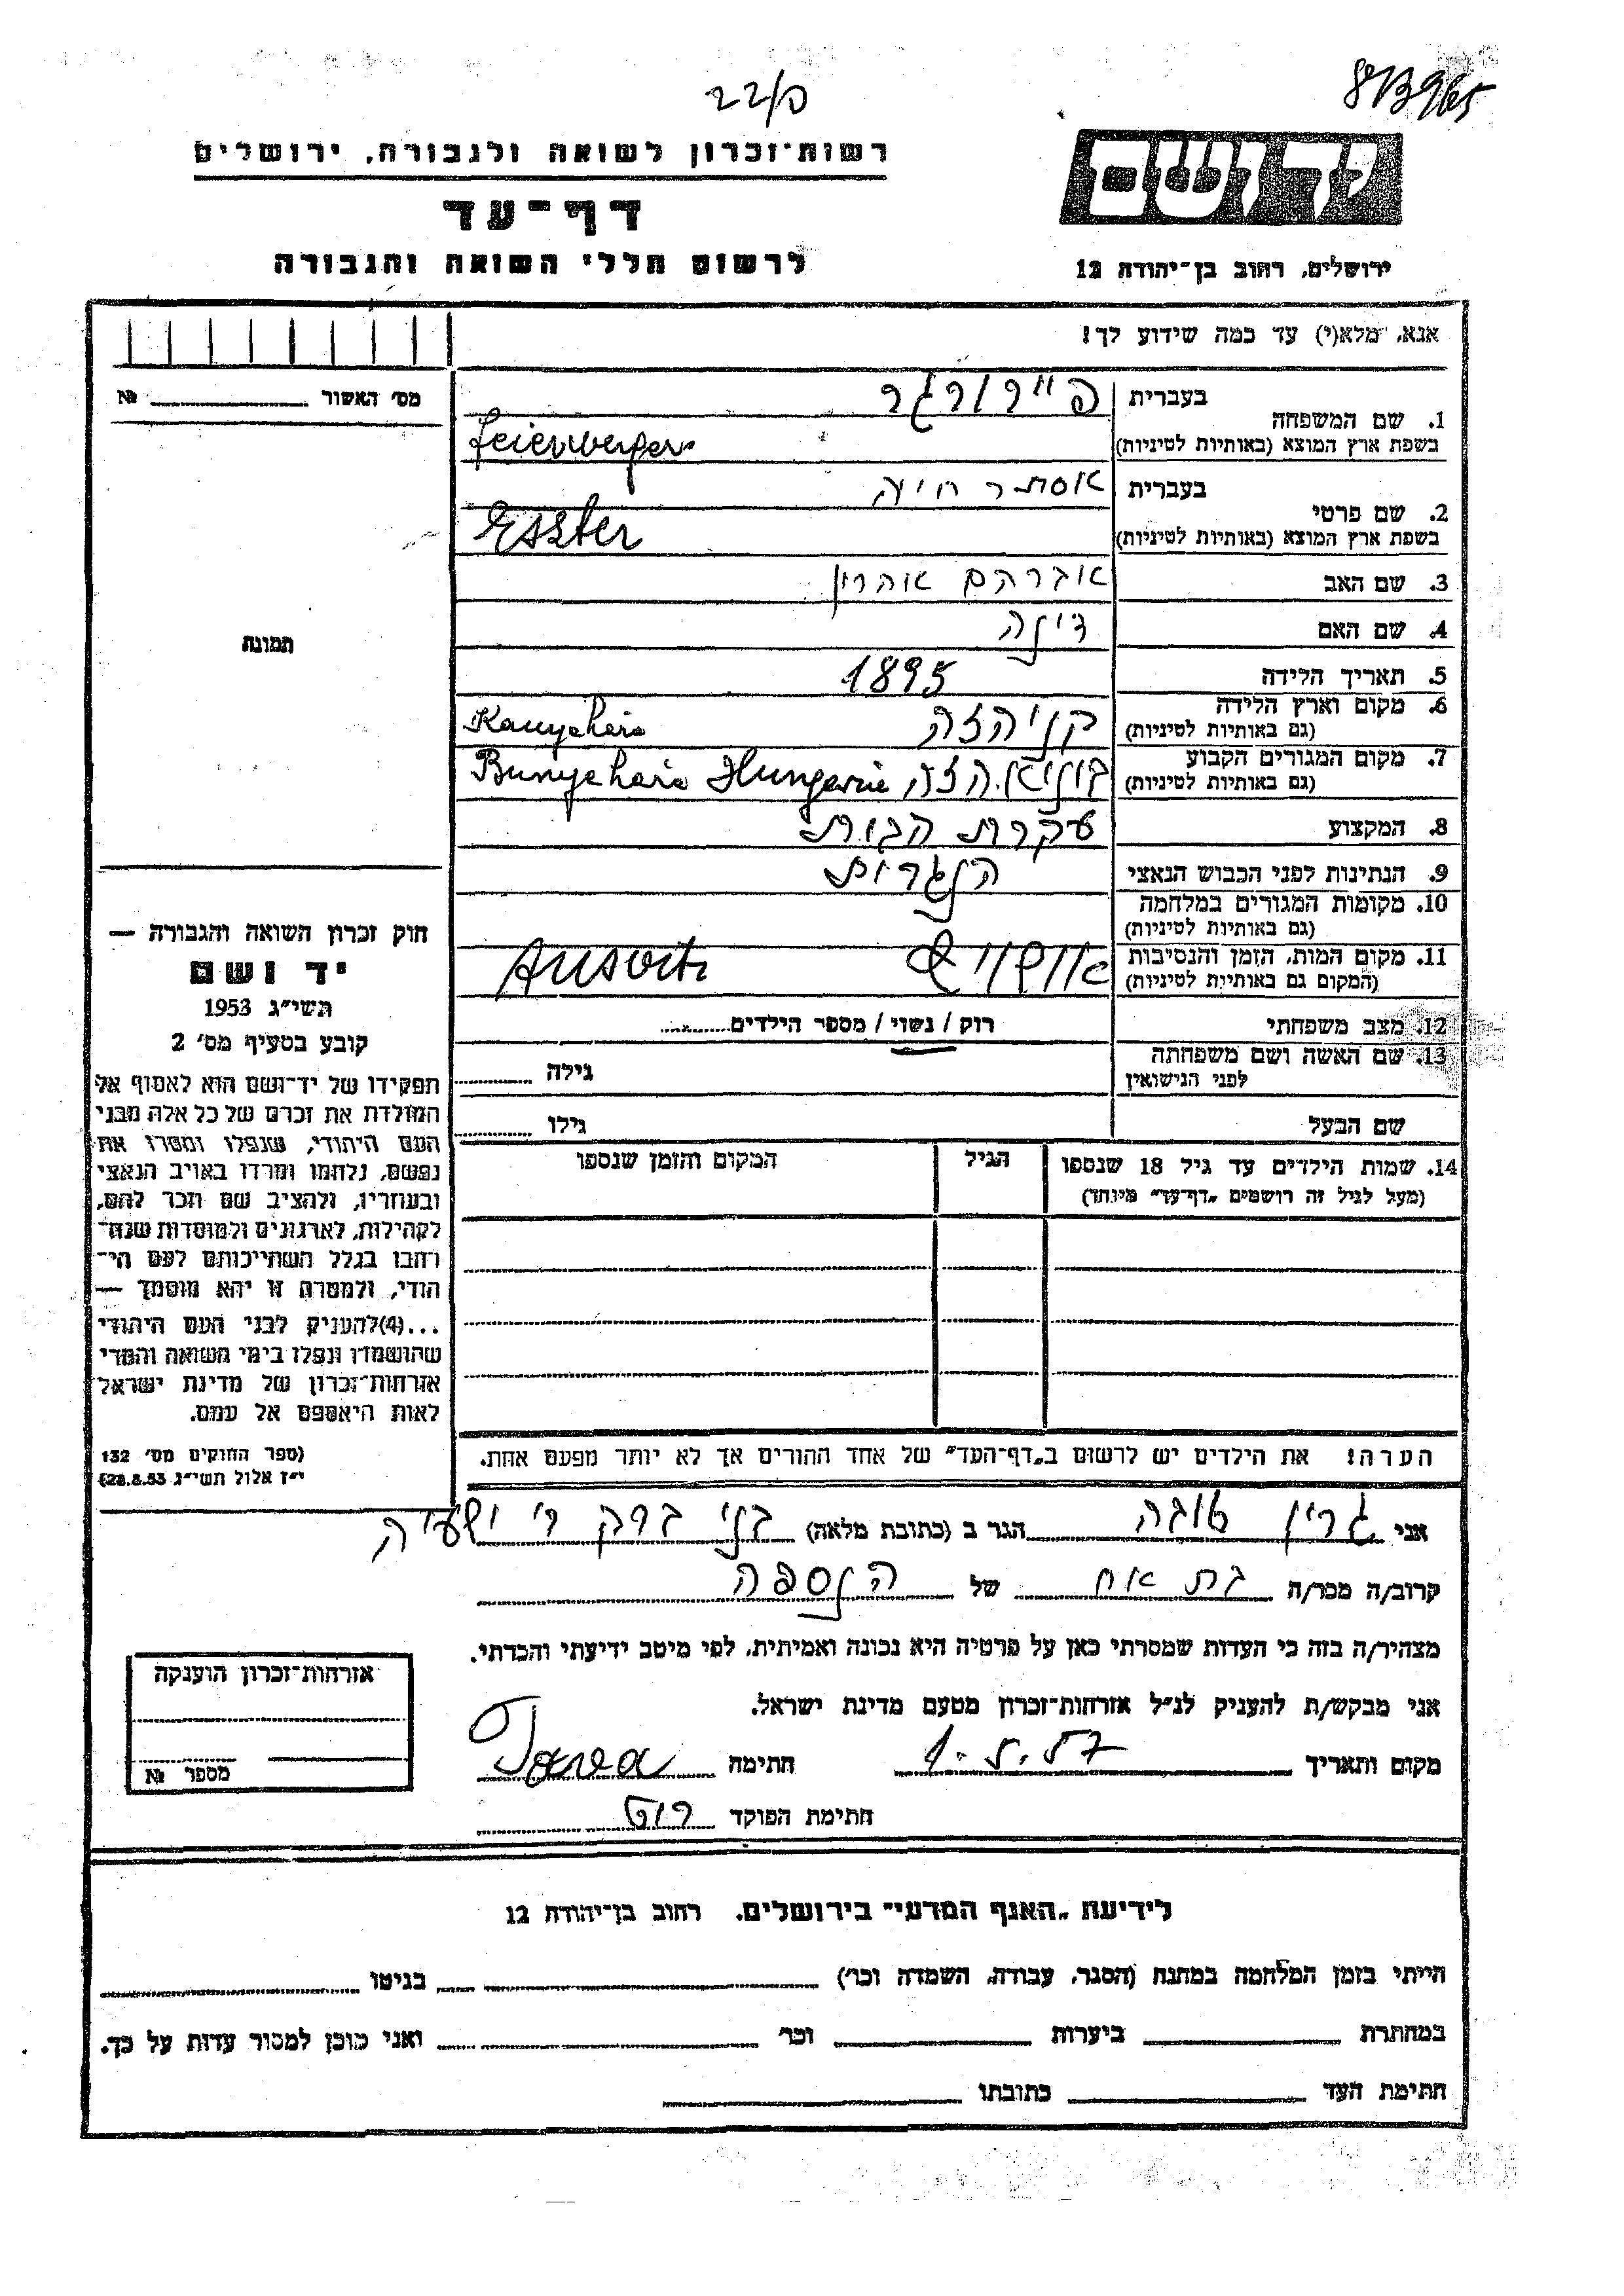 22/פ
רשות־זכרון לשואה ולגבורה, ירושלים
דף־עד
לרשום חללי השואה והגבורה
יד ושם
ירושלים, רחוב בן־יהודה 12
אנא, מלא(י) עד כמה שידוע לך!
מס׳ האשור № 
1. שם המשפחה
בעברית
בשפת ארץ המוצא (באותיות לטיניות)
Feierwerger
2. שם פרטי
בעברית אסתר חיה
בשפת ארץ המוצא (באותיות לטיניות) Eszter
3. שם האב אברהם אהרון
4. שם האם דינה
5. תאריך הלידה 1895
6. מקום וארץ הלידה קניהזה
(גם באותיות לטיניות)
7. מקום המגורים הקבוע
(גם באותיות לטיניות) Hungarie
8. המקצוע עקרת הבית
9. הנתינות לפני הכבוש הנאצי הנגרית
10. מקומות המגורים במלחמה
(גם באותיות לטיניות)
11. מקום המות, הזמן והנסיבות אושויץ
(המקום גם באותיות לטיניות)
12. מצב משפחתי רוק / נשוי / מספר הילדים
13. שם האשה ושם משפחתה
לפני הנישואין גילה
שם הבעל גילו
14. שמות הילדים עד גיל 18 שנספו הגיל המקום והזמן שנספו
(מעל לגיל זה רושמים „דף־עד״ מיוחד)
הערה! את הילדים יש לרשום ב„דף־העד״ של אחד ההורים אך לא יותר מפעם אחת.
תמונה
חוק זכרון השואה והגבורה —
יד ושם
תשי״ג 1953
קובע בסעיף מס׳ 2
תפקידו של יד־ושם הוא לאסוף אל
המולדת את זכרם של כל אלה מבני
העם היהודי, שנפלו ומסרו את
נפשם, נלחמו ומרדו באויב הנאצי
ובעוזריו, ולהציב שם וזכר להם,
לקהילות, לארגונים ולמוסדות שנח־
רבו בגלל השתייכותם לעם הי־
הודי, ולמטרה זו יהא מוסמך —
...(4)להעניק לבני העם היהודי
שהושמדו ונפלו בימי השואה והמרי
אזרחות־זכרון של מדינת ישראל
לאות היאספם אל עמם.
(ספר החוקים מס׳ 132
י״ז אלול תשי״ג 28.8.53)
אני גרין טובה הגר ב (כתובת מלאה) בני ברק ר׳ ישעיה
קרוב/ה מכר/ה בת אח של הנספה
מצהיר/ה בזה כי העדות שמסרתי כאן על פרטיה היא נכונה ואמיתית, לפי מיטב ידיעתי והכרתי.
אני מבקש/ת להעניק לנ״ל אזרחות־זכרון מטעם מדינת ישראל.
מקום ותאריך 1.5.57 חתימה
חתימת הפוקד
אזרחות־זכרון הוענקה
מספר №
לידיעת „האגף המדעי״ בירושלים, רחוב בן־יהודה 12
הייתי בזמן המלחמה במחנה (הסגר, עבודה, השמדה וכו׳) בגיטו
במחתרת ביערות וכו׳ ואני מוכן למסור עדות על כך.
חתימת העד כתובתו